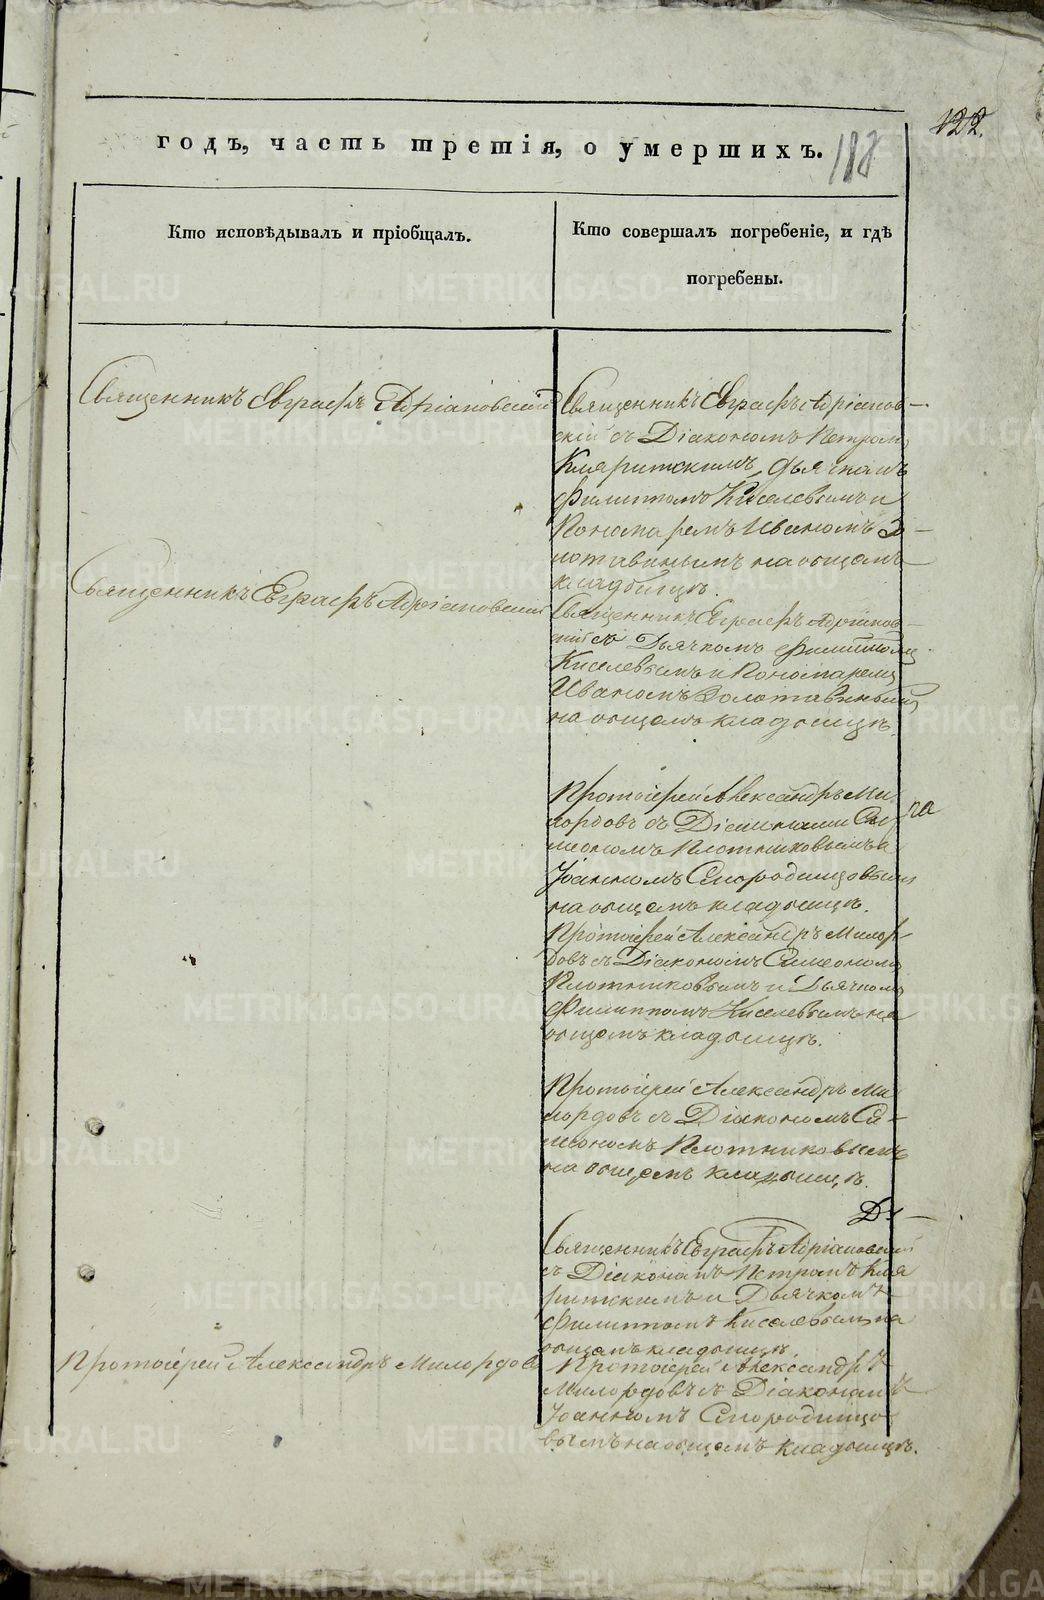 122.
годъ, часть третія, о умершихъ.
188
Кто исповѣдывалъ и пріобщалъ.
Кто совершалъ погребеніе, и гдѣ
погребены.
Священникъ Евграфъ Адріановскій
Священникъ Евграфъ Адріанов-
скій съ Діакономъ Петромъ
Кляритскимъ, Дьячкомъ
Филиппомъ Киселевымъ и
Пономаремъ Иваномъ Зо-
лотавинымъ на общемъ
кладбищѣ.
Священникъ Евграфъ Адріановскій
Священникъ Евграфъ Адріанов-
скій съ Дьячкомъ Филиппомъ
Киселевымъ и Пономаремъ
Иваномъ Золотавинымъ
на общемъ кладбищѣ.
Протоіерей Александръ Ми-
лордовъ съ Діаконами Си-
меономъ Плотниковымъ и
Іоанномъ Смородинцовымъ
на общемъ кладбищѣ.
Протоіерей Александръ Милор-
довъ съ Діакономъ Симеономъ
Плотниковымъ и Дьячкомъ
Филиппомъ Киселевымъ на
общемъ кладбищѣ.
Протоіерей Александръ Ми-
лордовъ съ Діакономъ Си-
меономъ Плотниковымъ
на общемъ кладбищѣ.
Священникъ Евграфъ Адріановскій
съ Діакономъ Петромъ Кля
ритскимъ и Дьячкомъ
Филиппомъ Киселевымъ на
общемъ кладбищѣ.
Протоіерей Александръ Милордовъ
Протоіерей Александръ
Милордовъ съ Діакономъ
Іоанномъ Смородинцо-
вымъ на общемъ кладбищѣ.
METRIKI.GASO-URAL.RU